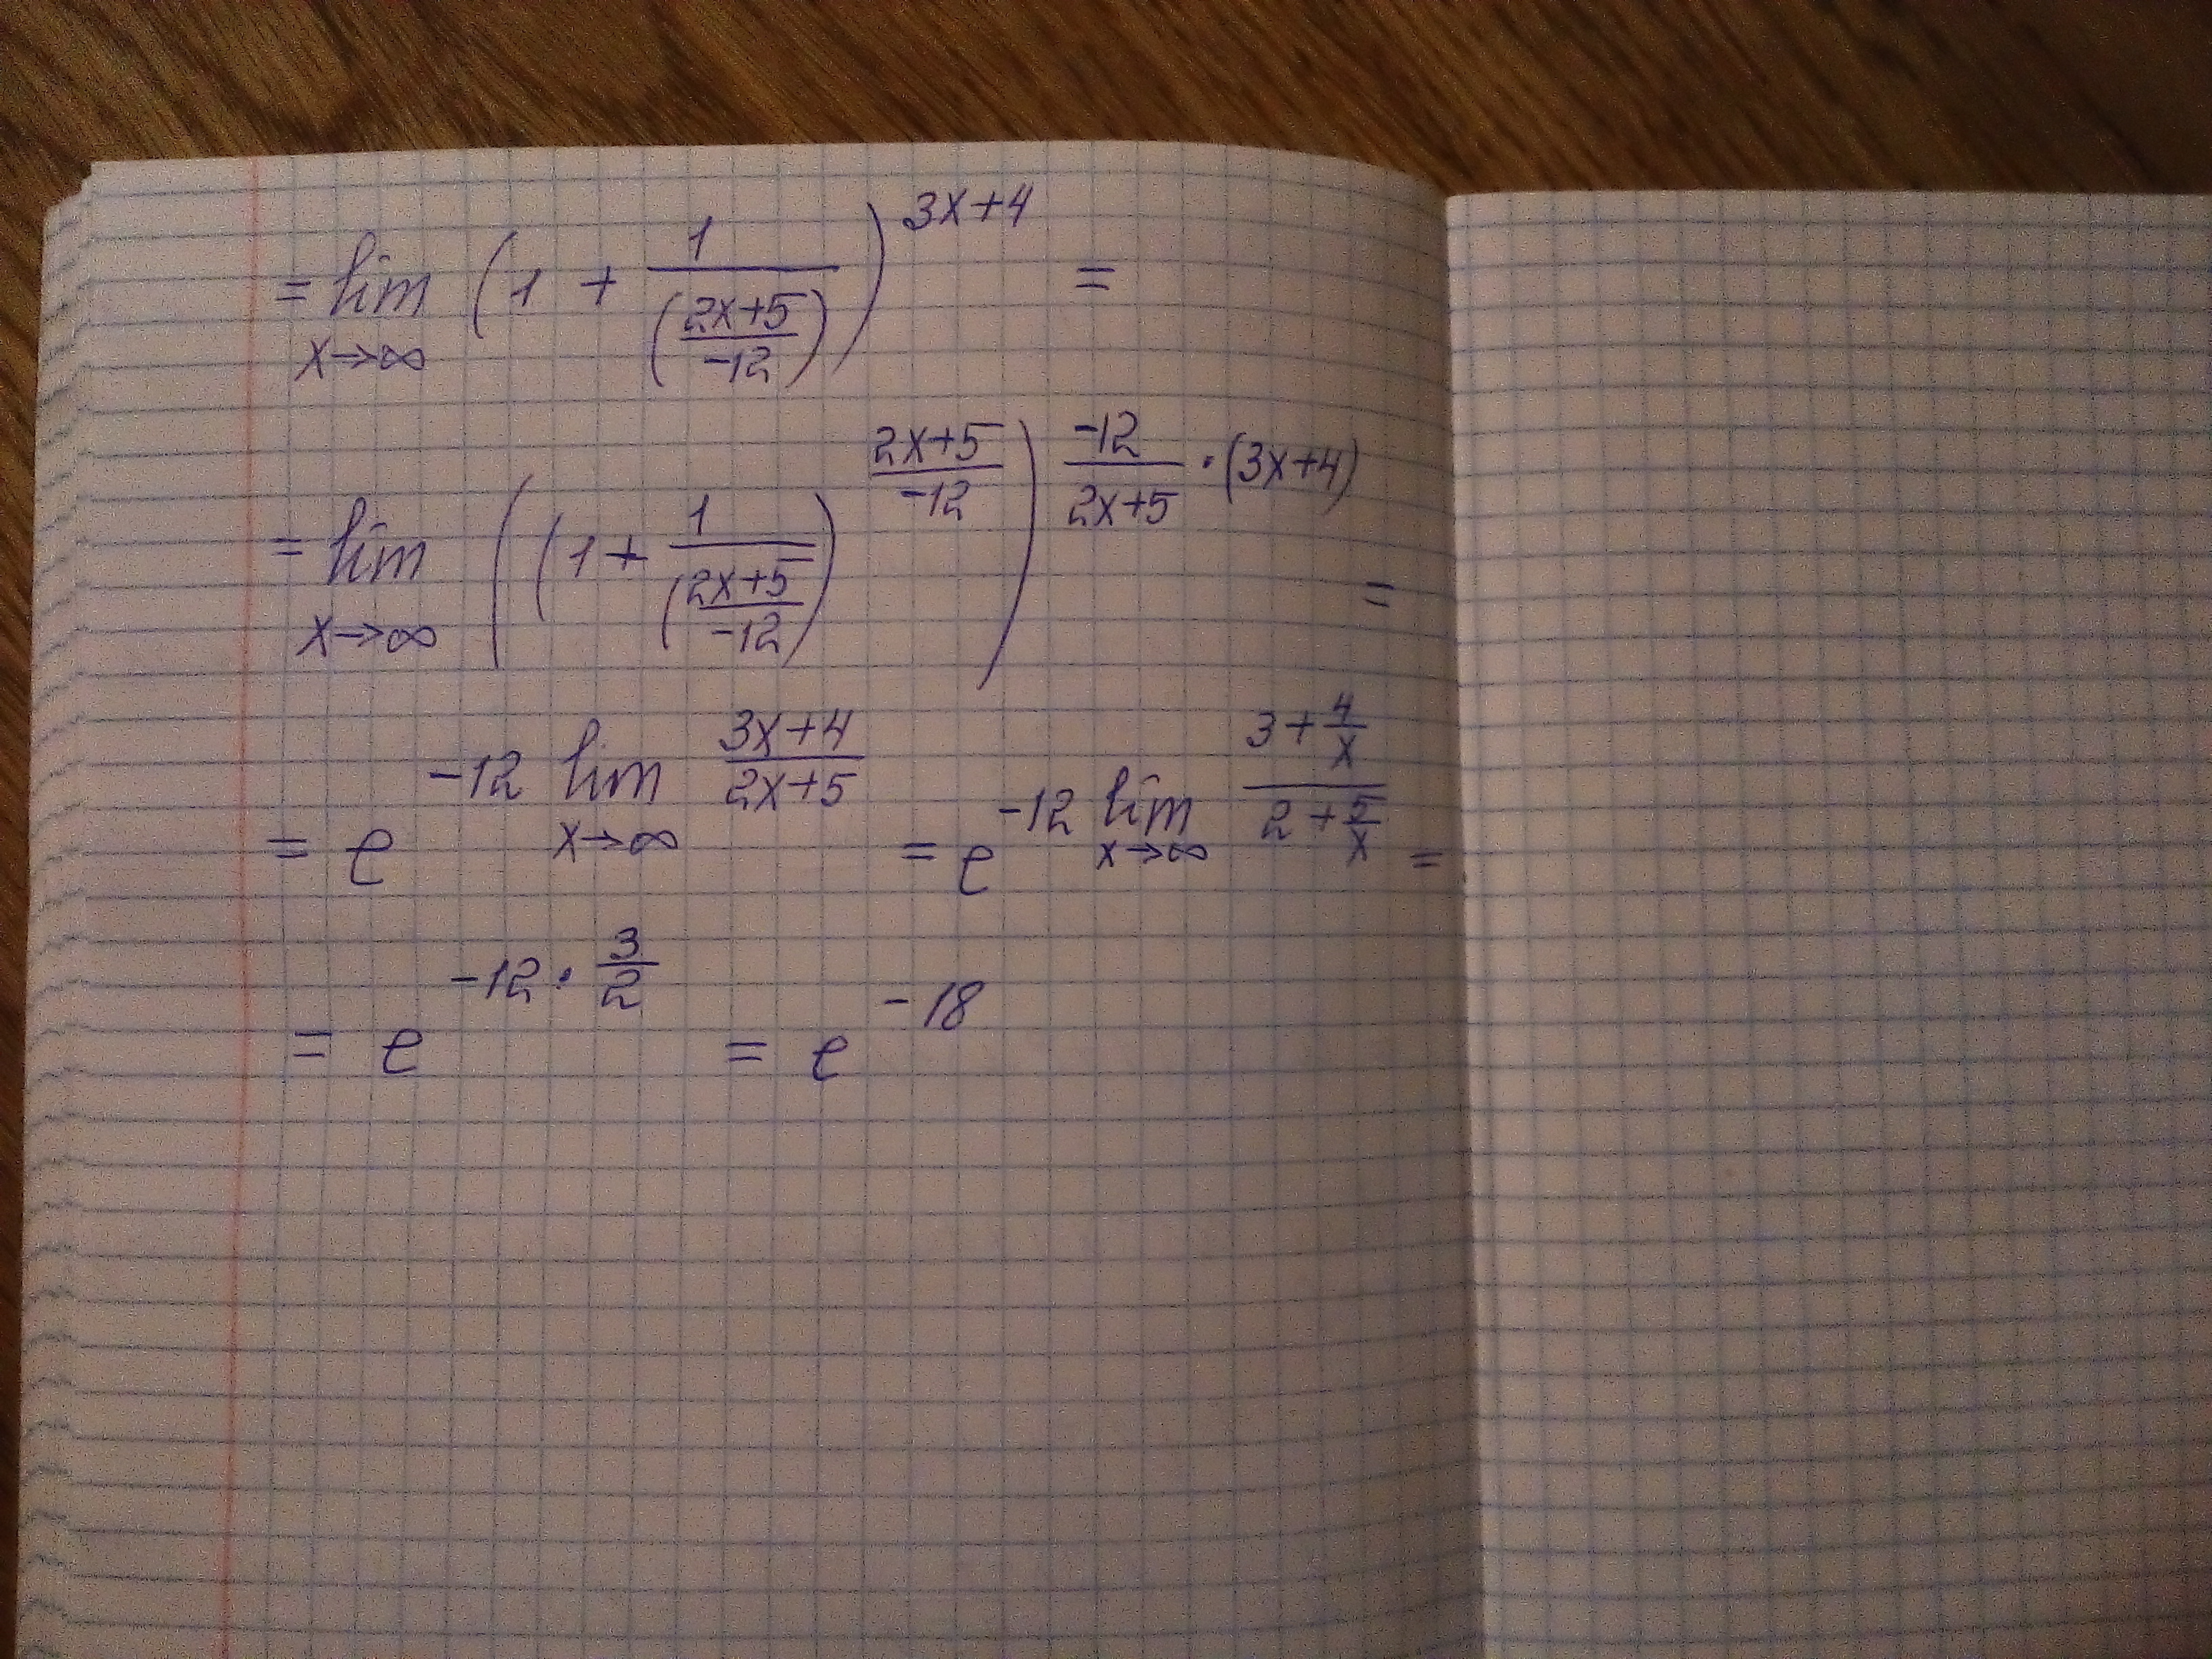 = lim x→∞ (1 + 1/((2x+5)/(-12)))^(3x+4) =
= lim x→∞ ((1 + 1/((2x+5)/(-12)))^((2x+5)/(-12)))^((-12)/(2x+5) · (3x+4)) =
= e^(-12 lim x→∞ (3x+4)/(2x+5)) = e^(-12 lim x→∞ (3 + 4/x)/(2 + 5/x)) =
= e^(-12 · 3/2) = e^(-18)